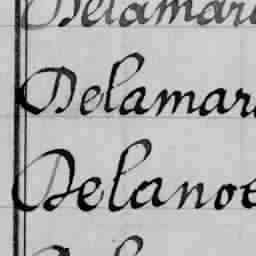 Delamar
Delamar
Delanoe